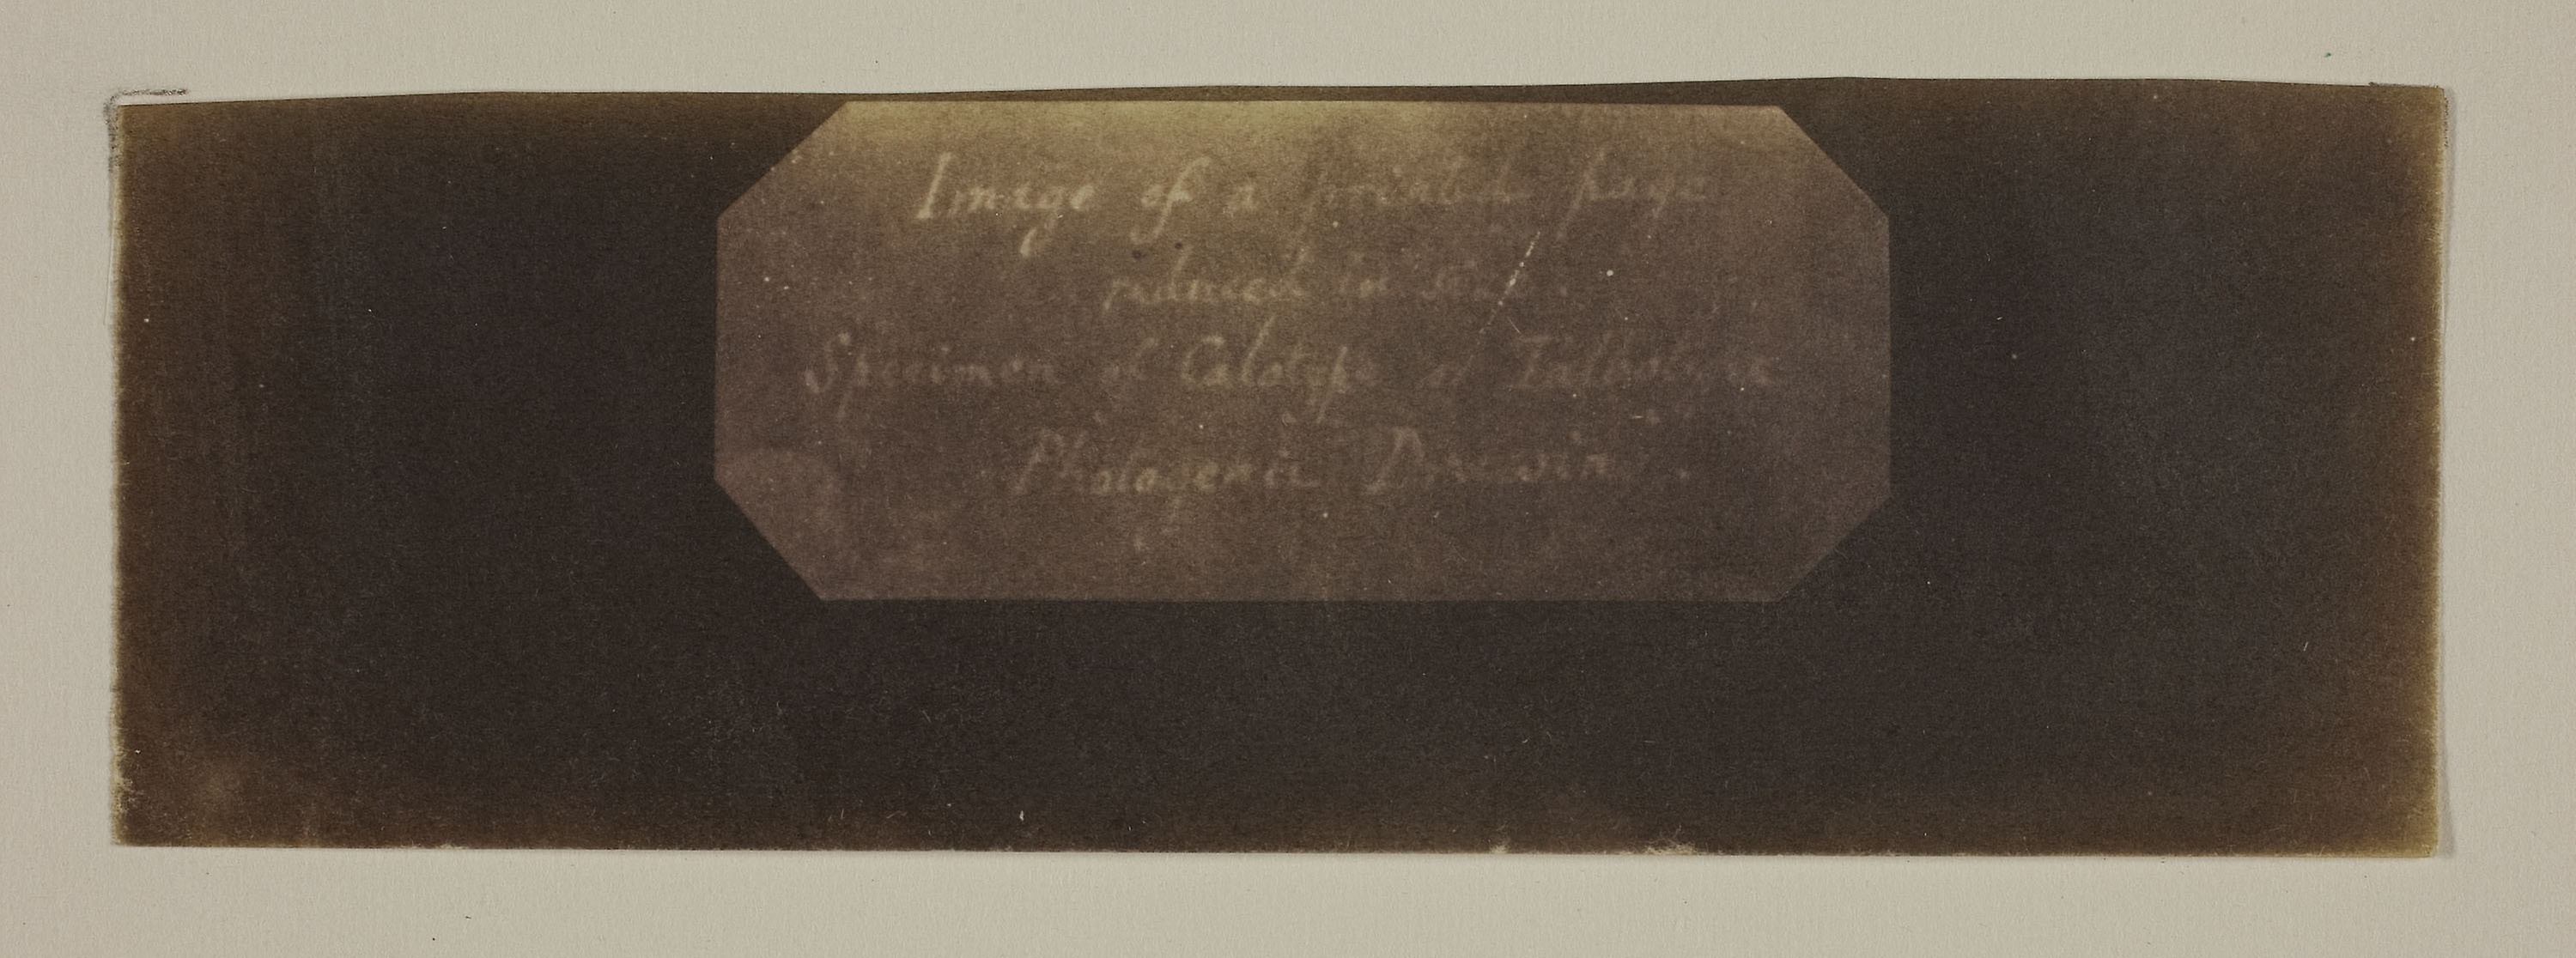 Image of a printed page
reduced in size.
Specimen of Calotype or Talbotype
Photogenic Drawing.